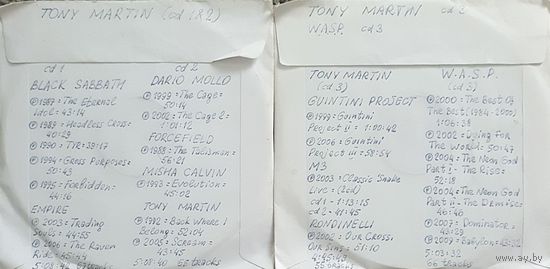 TONY MARTIN (cd 1&2)
cd 1
BLACK SABBATH
℗ 1987 = The Eternal
Idol = 43:14
℗ 1989 = Headless Cross =
40:29
℗ 1990 = TYR = 39:17
℗ 1994 = Cross Purposes =
50:43
℗ 1995 = Forbidden =
44:16
EMPIRE
℗ 2003 = Trading
Souls = 44:55
℗ 2006 = The Raven
Ride =
cd 2
DARIO MOLLO
℗ 1999 = The Cage =
50:14
℗ 2002 = The Cage 2 =
1:01:12
FORCEFIELD
℗ 1988 = The Talisman =
56:21
MISHA CALVIN
℗ 1993 = Evolution =
45:02
TONY MARTIN
℗ 1992 = Back Where I
Belong = 52:04
℗ 2005 = Scream =
43:45
5:08:40 65 tracks
TONY MARTIN cd 2
W.A.S.P. cd 3
TONY MARTIN
(cd 3)
GUINTINI PROJECT
℗ 1999 = Guintini
Project II = 1:00:42
℗ 2006 = Guintini
Project III = 58:54
M3
℗ 2003 = Classic Snake
Live = (2cd)
cd 1 - 1:13:15
cd 2 - 41:45
RONDINELLI
℗ 2002 = Our Cross,
Our Sins = 51:10
4:45:43
W.A.S.P.
(cd 3)
℗ 2000 = The Best Of
The Best (1984-2000)
1:06:38
℗ 2002 = Dying For
The World = 50:47
℗ 2004 = The Neon God
Part I - The Rise =
52:18
℗ 2004 = The Neon God
Part II - The Demise =
46:40
℗ 2007 = Dominator =
42:29
℗ 2009 = Babylon = 43:32
5:03:32
55 tracks
www.ay.by